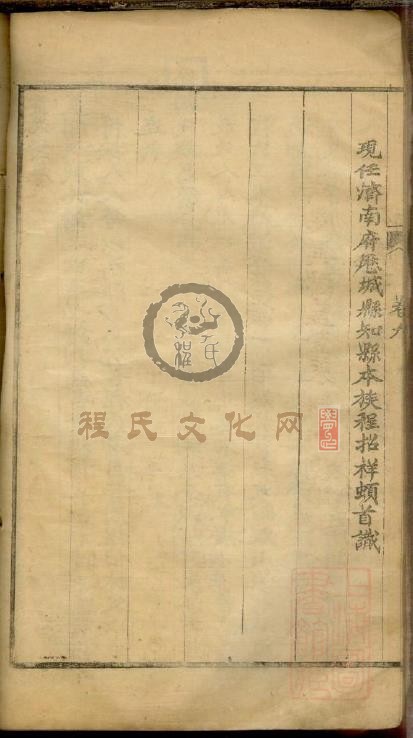 卷九
現任濟南府歷城縣知縣本族程招祥頓首識
程氏文化网
程氏